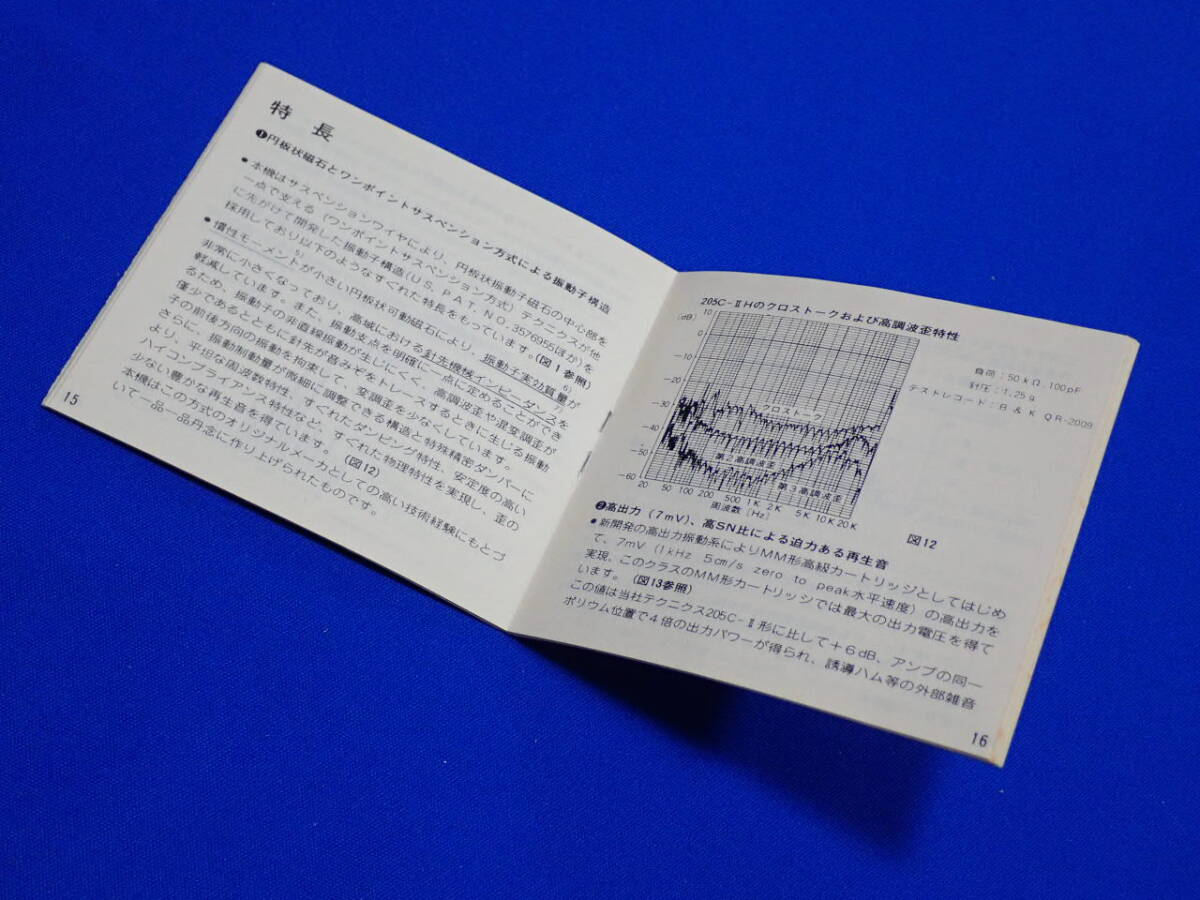 特 長
❶円板状磁石とワンポイントサスペンション方式による振動子構造
●本機はサスペンションワイヤにより、円板状振動子磁石の中心部を
一点で支える(ワンポイントサスペンション方式)テクニクスが他
に先がけて開発した振動子構造(US. PAT. NO. 3576955ほか)を
採用しており以下のようなすぐれた特長をもっています。(図1参照)
●慣性モーメント5)が小さい円板状可動磁石により、振動子実効質量6)が
非常に小さくなっており、高域における針先機械インピーダンス7)を
軽減しています。また、振動支点を明確に一点に定めることができ
るため、振動子の非直線振動が生じにくく、高調波歪や混変調歪が
僅少であるとともに針先が音みぞをトレースするときに生じる振動
子の前後方向の振動を拘束して、変調歪を少なくしています。
さらに、振動制動量が微細に調整できる構造と特殊精密ダンパーに
より、平坦な周波数特性、すぐれたダンピング特性、安定度の高い
ハイコンプライアンス特性など、すぐれた物理特性を実現し、歪の
少ない豊かな再生音を得ています。(図12)
本機はこの方式のオリジナルメーカとしての高い技術経験にもとづ
いて一品一品丹念に作り上げられたものです。
15
205C-ⅡHのクロストークおよび高調波歪特性
負荷:50kΩ. 100pF
針圧:1.25g
テストレコード:B & K QR-2009
[dB]
10
0
-10
-20
-30
-40
-50
-60
クロストーク
第2高調波歪
第3高調波歪
20 50 100 200 500 1K 2K 5K 10K 20K
周波数 [Hz]
図12
❷高出力(7mV)、高SN比による迫力ある再生音
●新開発の高出力振動系によりMM形高級カートリッジとしてはじめ
て、7mV(1kHz 5cm/s zero to peak水平速度)の高出力を
実現、このクラスのMM形カートリッジでは最大の出力電圧を得て
います。(図13参照)
この値は当社テクニクス205C-Ⅱ形に比して+6dB、アンプの同一
ボリウム位置で4倍の出力パワーが得られ、誘導ハム等の外部雑音
16